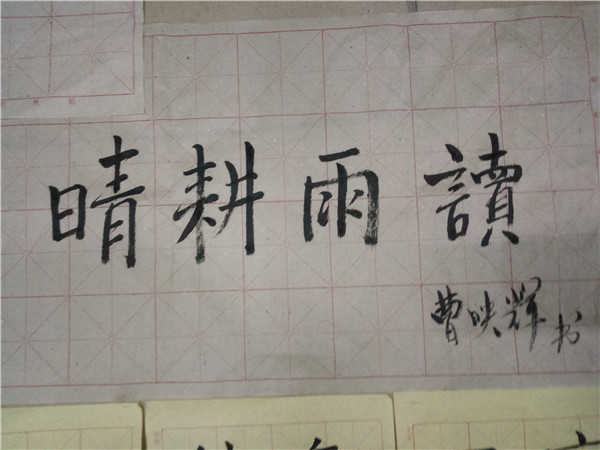 晴耕雨讀
曹映辉书